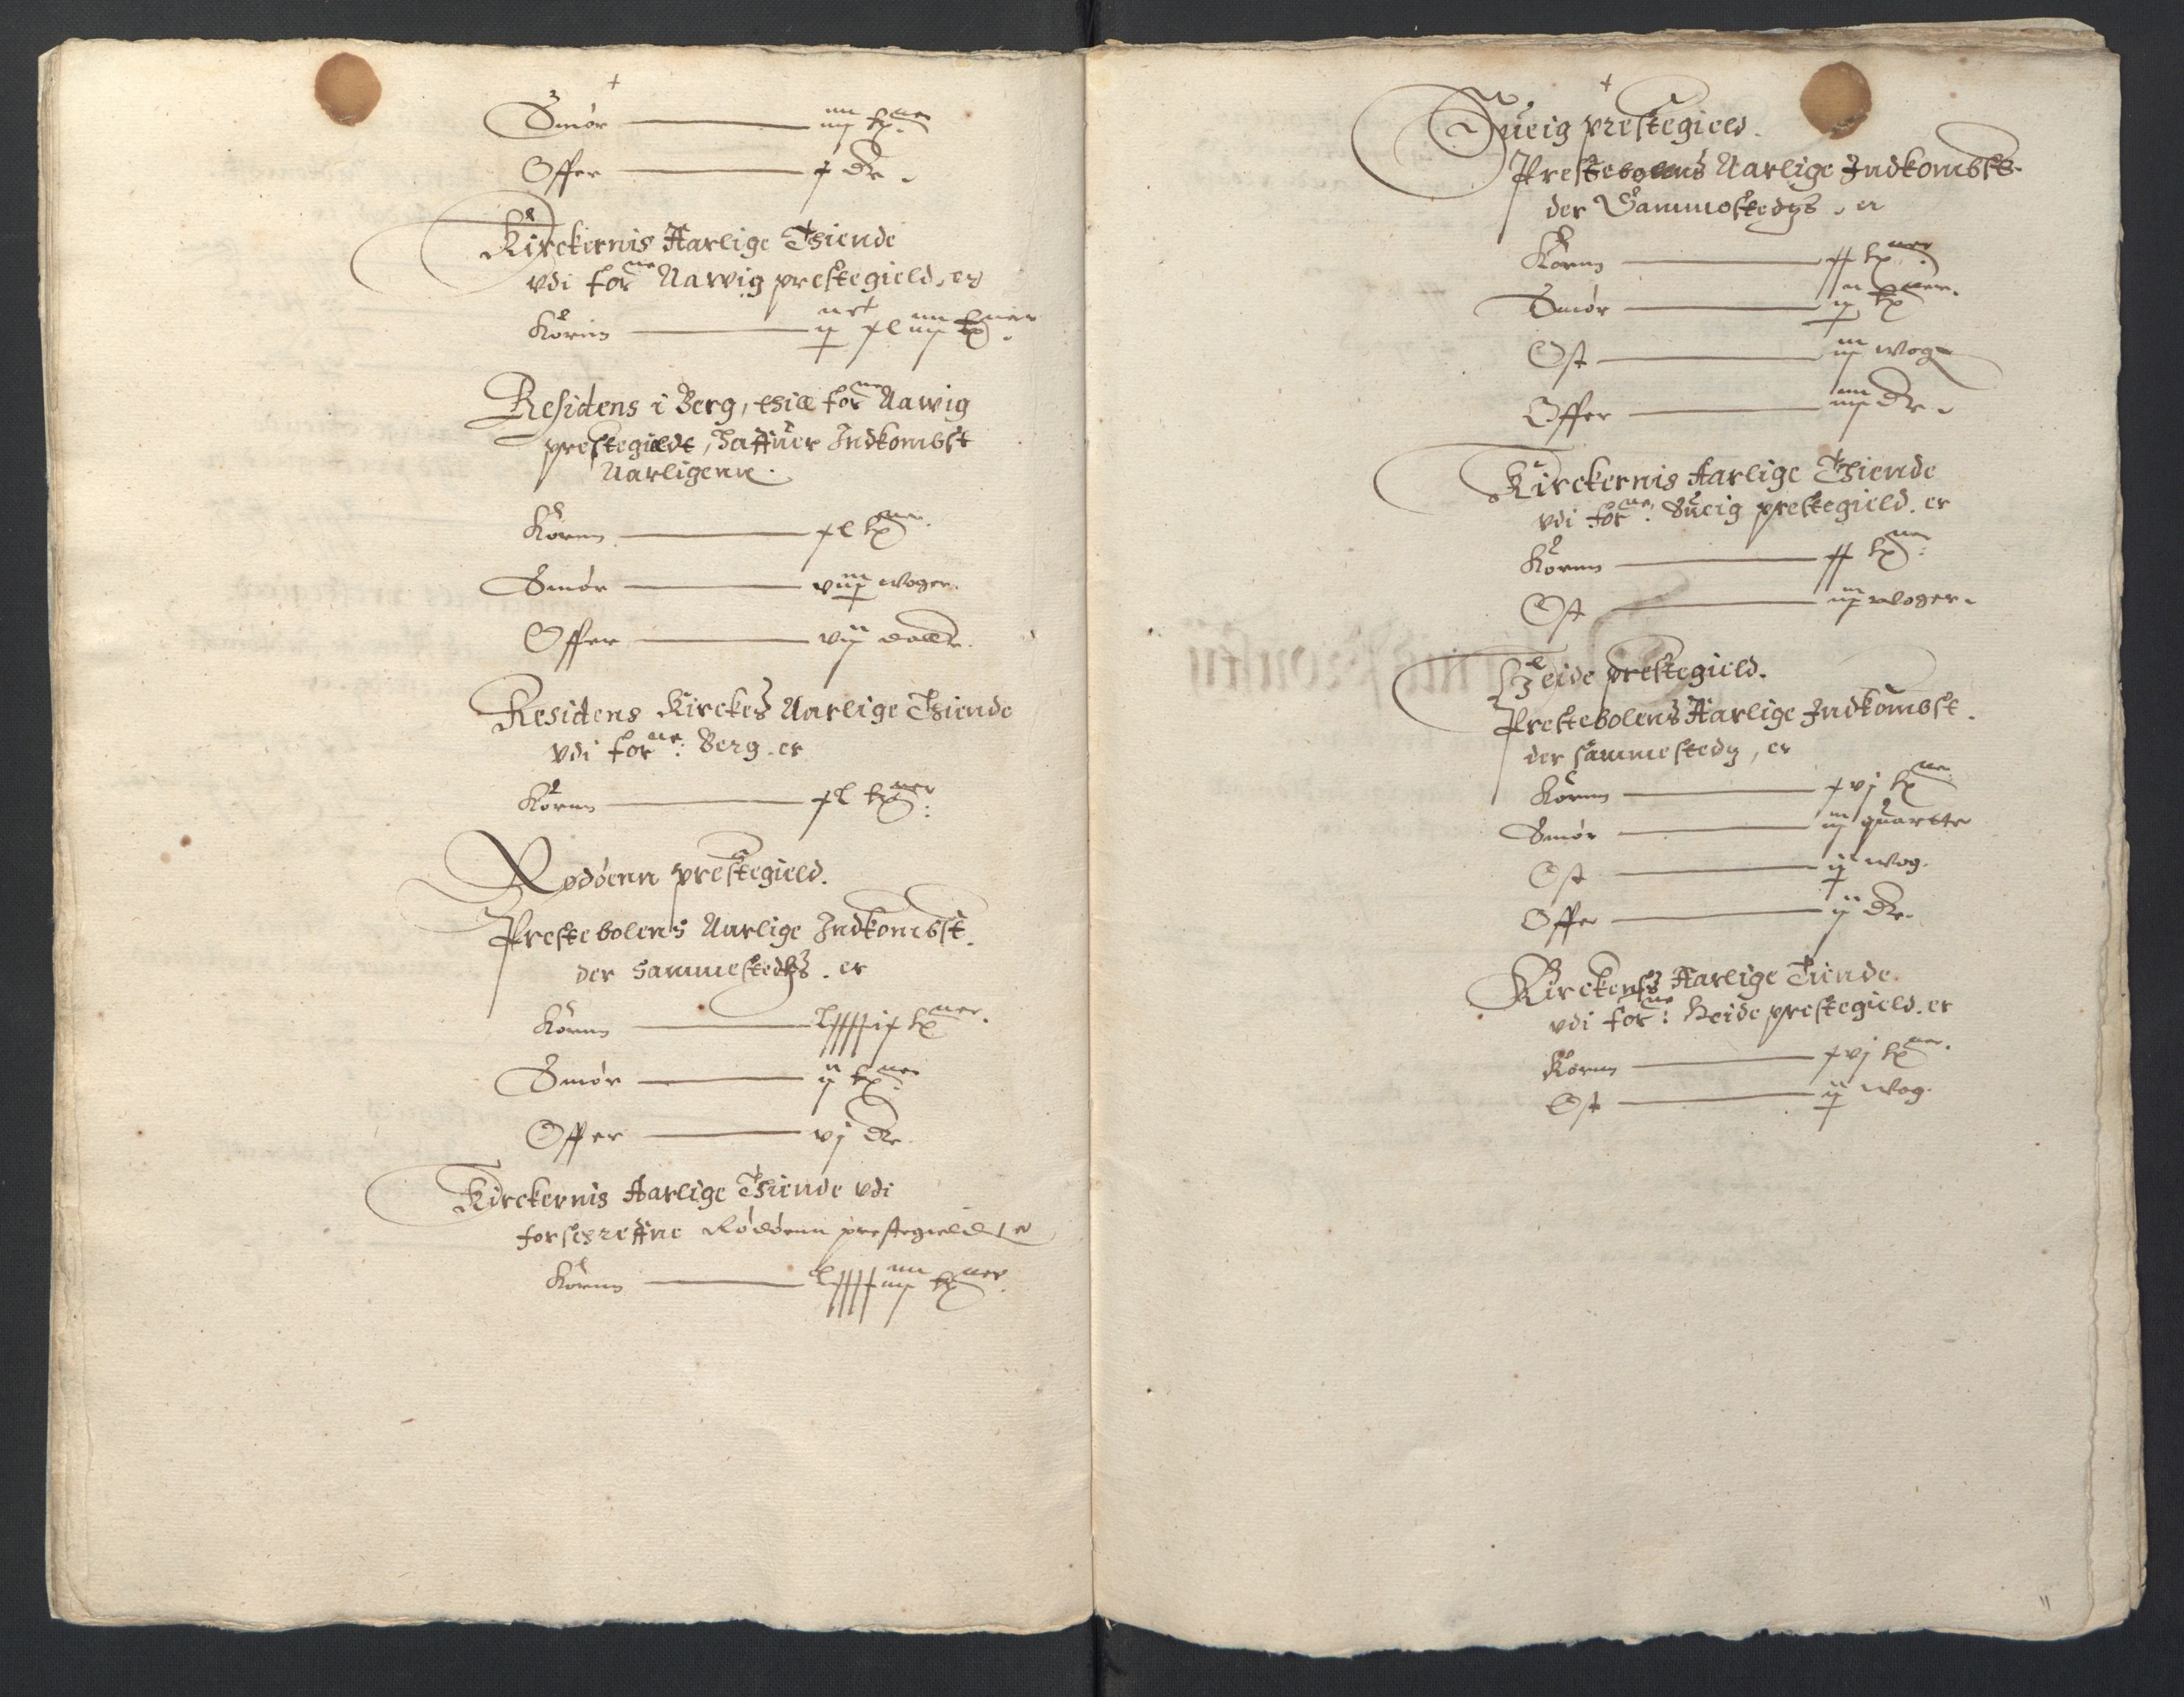 +
Smør iiij kp ner
Offer x Dr.
Kirckernis Aarlige Thiende
vdi for ne Narvig prestegield, er
Kornn xl iiij kp ner.
Residens i Berg, thill for ne Narvig
prestegieldt, Haffuer Indkombst
Aarligenn.
Kornn xl kp ner.
Smør viij woger.
Offer vij daler.
Residens Kirckes Aarlige Thiende
vdi for ne: Berg. er
Kornn xl kp ner:
Rødøenn prestegield.
Prestebolens Aarlige Indkombst.
der Sammestedtz. er
Kornn kp ner.
Smør ij kp ner
Offer vj Dr.
Kirckernis Aarlige Thiende vdi
forschreffne Rødøenn prestegieldt er
Kornn kp ner.
+
Sueig prestegield.
Prestebolens Aarlige Indkombst.
der Sammestedtz, er
Kornn xx kp ner:
Smør ij kp ner.
Ost iij wog
Offer iiij Dr.
Kirckernis Aarlige Thiende
vdi for ne: Sueig prestegield. er
Kornn xx kp ner:
Ost iij woger.
Heide prestegield.
Prestebolens Aarlige Indkombst.
der sammestedz, er
Kornn xvj kp ner.
Smør iij quarter
Ost ij wog.
Offer ij Dr.
Kirckens Aarlige Tiende.
vdi for ne: Heide prestegield. er
Kornn xvj kp ner.
Ost ij wog.
11